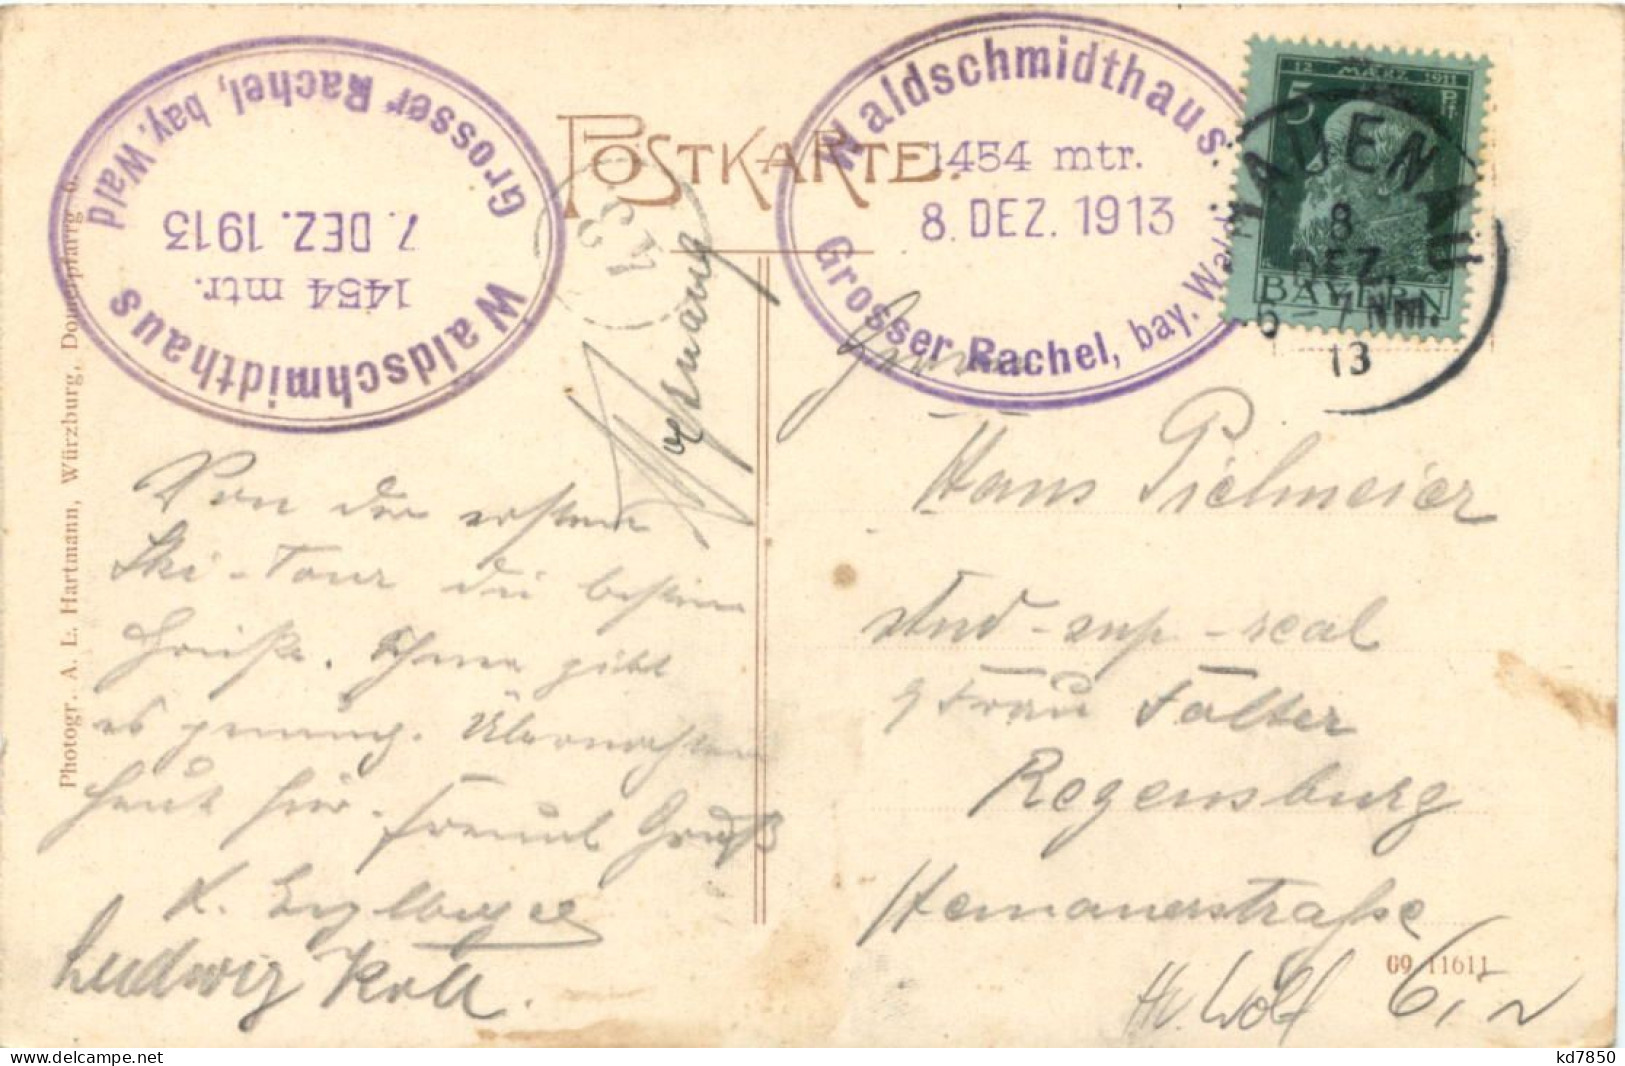 Waldschmidthaus
1454 mtr.
7. DEZ. 1913
Grosser Rachel, bay. Wald
POSTKARTE.
Waldschmidthaus.
1454 mtr.
8. DEZ. 1913
Grosser Rachel, bay. Wald
12 MÆRZ 1911
5 Pf
BAYERN
8
DEZ.
NM.
13
Photogr. A. L. Hartmann, Würzburg, Domerpfarrg. 6.
Von der ersten
Ski-Tour die besten
Grüße. Schnee gibt
es genug. Übernachten
heut hier. Freundl Gruß
Ludwig Koll.
Hans Pielmeier
stud-sup-real
Frau Falter
Regensburg
Hemauerstraße
G9 11611
kd7850